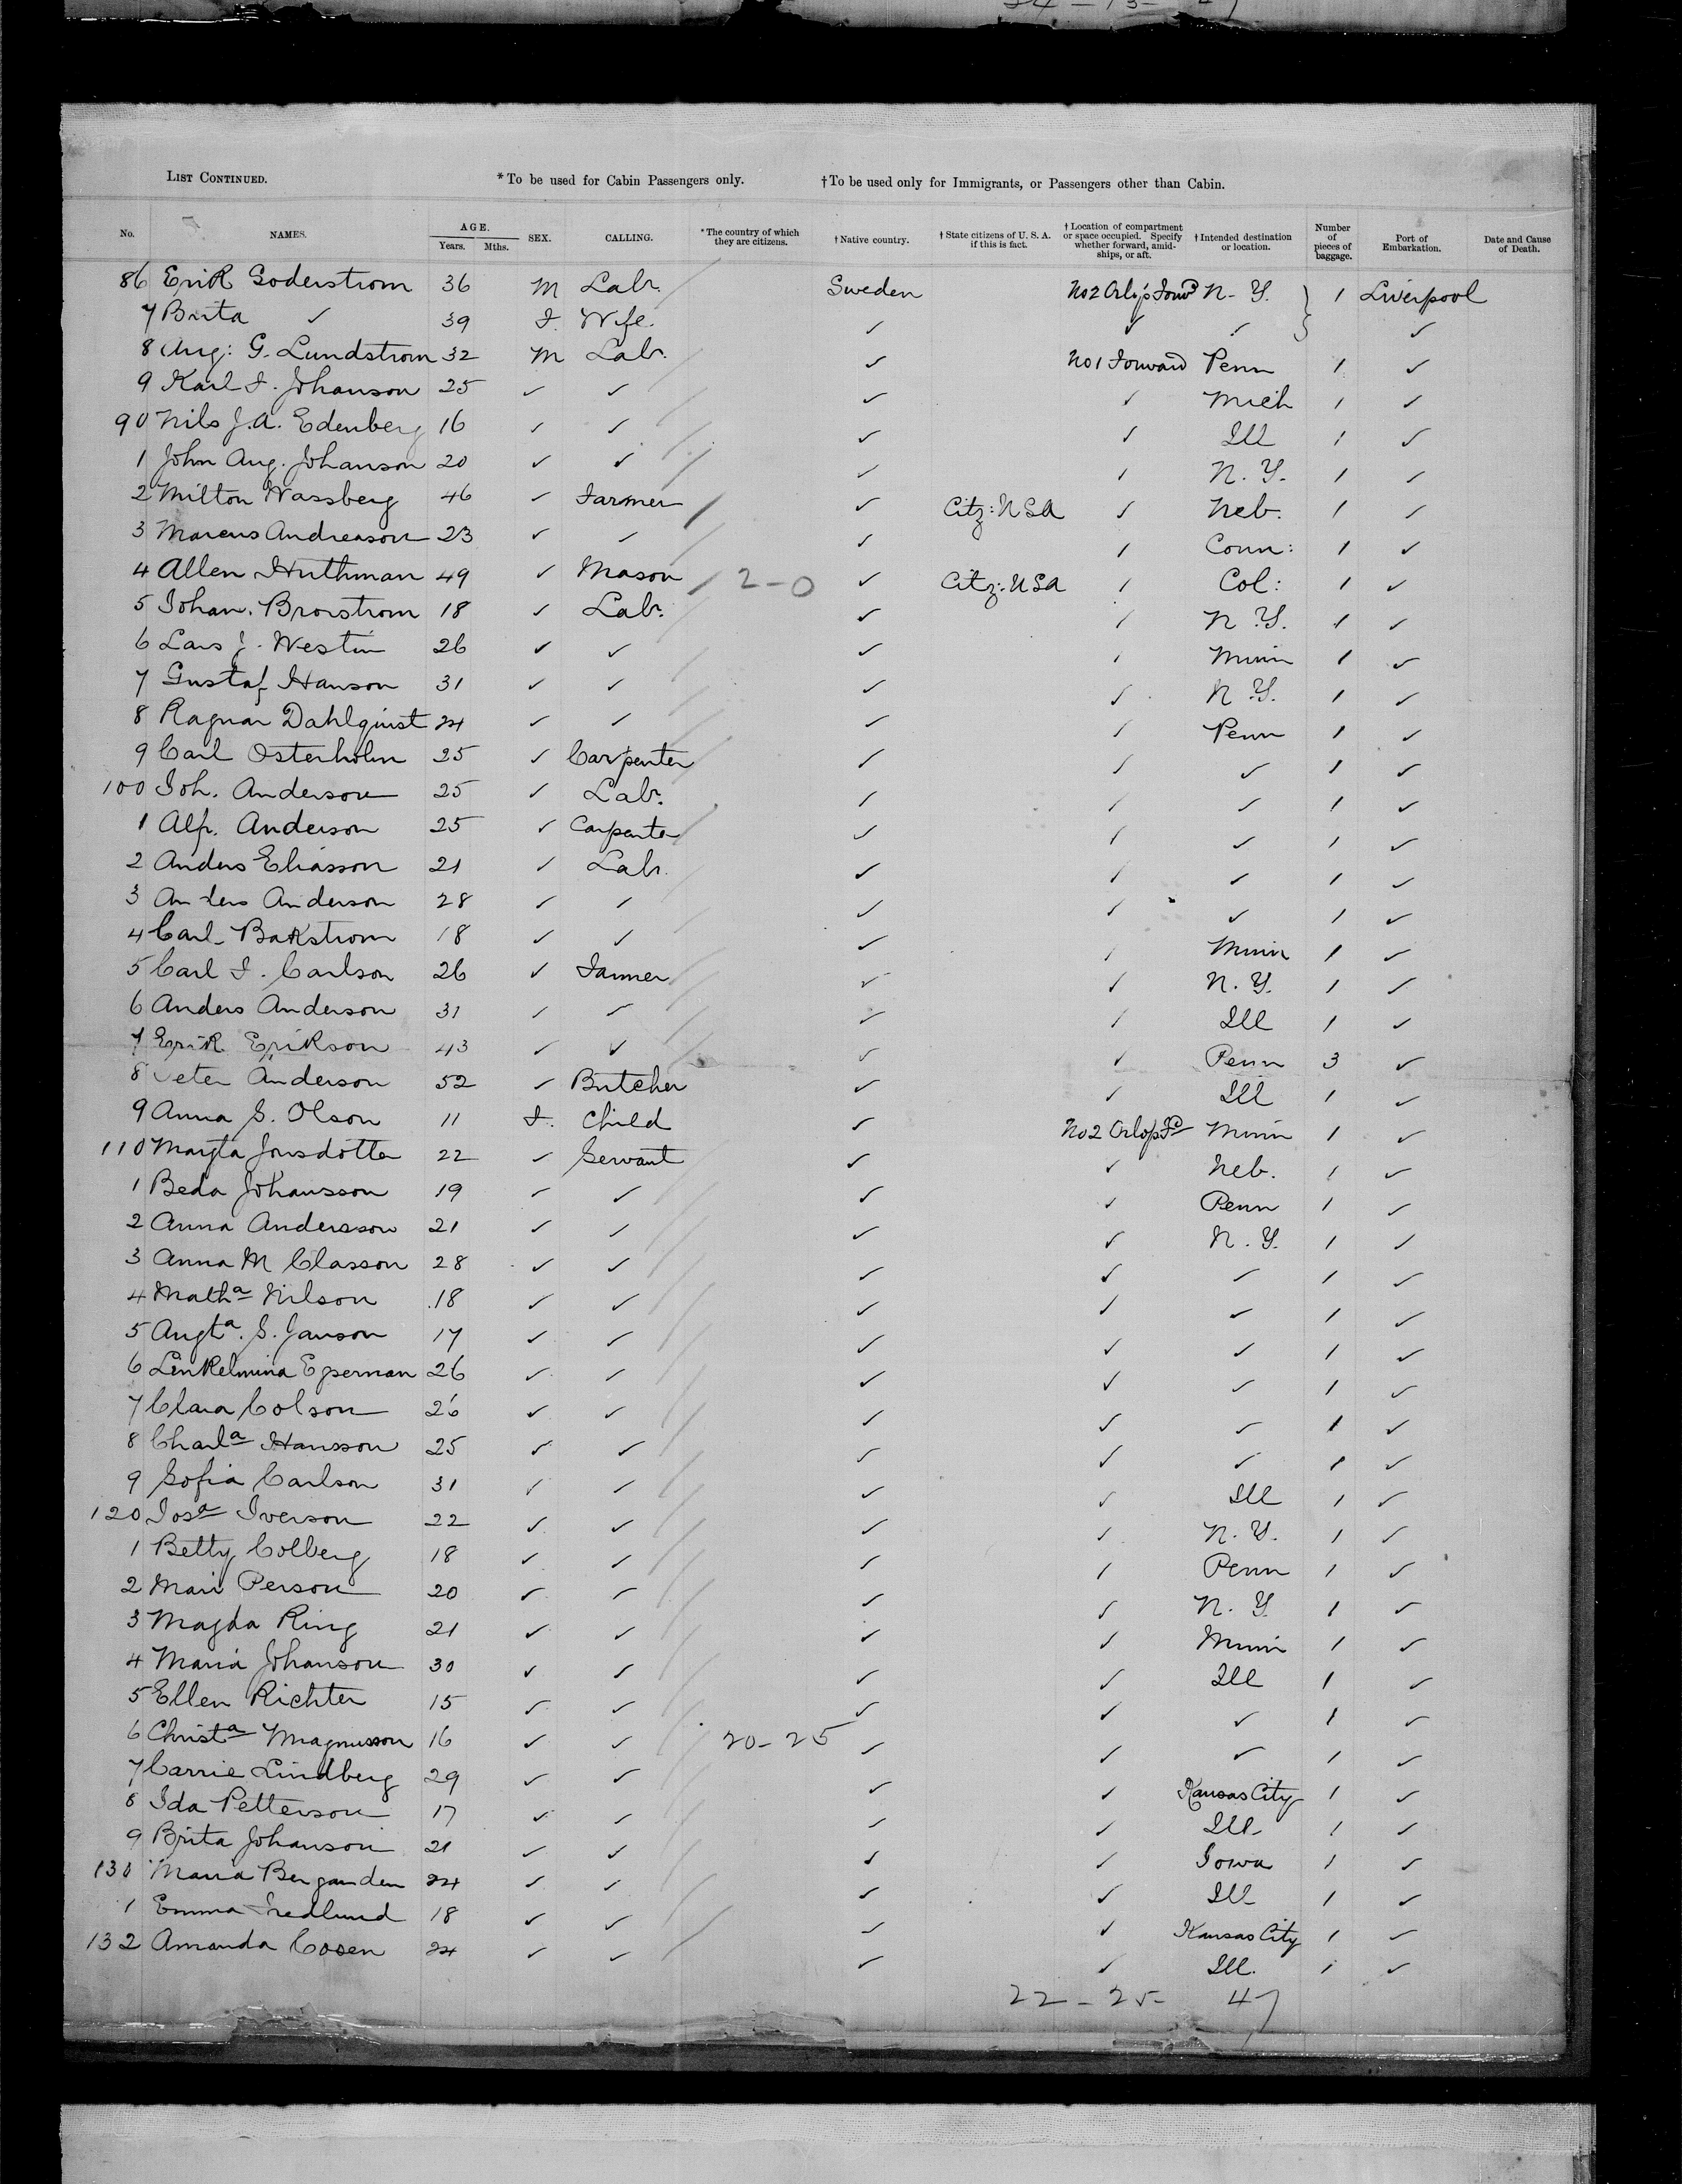 34-13-47
LIST CONTINUED. *To be used for Cabin Passengers only. †To be used only for Immigrants, or Passengers other than Cabin.
No. NAMES. AGE. Years. Mths. SEX. CALLING. *The country of which they are citizens. †Native country. †State citizens of U. S. A. if this is fact. †Location of compartment or space occupied. Specify whether forward, amidships, or aft. †Intended destination or location. Number of pieces of baggage. Port of Embarkation. Date and Cause of Death.
86 Erik Soderstrom 36 M Labr. Sweden No2 Orlop Forwd N-Y. } 1 Liverpool
7 Brita ✓ 39 F. Wife. ✓ ✓ ✓ ✓
8 Aug: G. Lundstrom 32 M Labr. ✓ No1 Forward Penn 1 ✓
9 Karl F. Johanson 25 ✓ ✓ ✓ ✓ Mich 1 ✓
90 Nils J.A. Edenberg 16 ✓ ✓ ✓ ✓ Ill 1 ✓
1 John Aug. Johanson 20 ✓ ✓ ✓ ✓ N.Y. 1 ✓
2 Milton Wassberg 46 ✓ Farmer ✓ Citz: USA ✓ Neb. 1 ✓
3 Marcus Andreason 23 ✓ ✓ ✓ ✓ Conn: 1 ✓
4 Allen Huthman 49 ✓ Mason 2-0 ✓ Citz: USA ✓ Col: 1 ✓
5 Johan. Brorstrom 18 ✓ Labr. ✓ ✓ N.Y. 1 ✓
6 Lars J. Westin 26 ✓ ✓ ✓ ✓ Minn 1 ✓
7 Gustaf Hanson 31 ✓ ✓ ✓ ✓ N.Y. 1 ✓
8 Ragnar Dahlquist 24 ✓ ✓ ✓ ✓ Penn 1 ✓
9 Carl Osterholm 25 ✓ Carpenter ✓ ✓ ✓ 1 ✓
100 Joh. Anderson 25 ✓ Labr. ✓ ✓ ✓ 1 ✓
1 Alfr. Anderson 25 ✓ Carpenter ✓ ✓ ✓ 1 ✓
2 Anders Eliasson 21 ✓ Labr. ✓ ✓ ✓ 1 ✓
3 Anders Anderson 28 ✓ ✓ ✓ ✓ ✓ 1 ✓
4 Carl Bakstrom 18 ✓ ✓ ✓ ✓ Minn 1 ✓
5 Carl F. Carlson 26 ✓ Farmer ✓ ✓ N.Y. 1 ✓
6 Anders Anderson 31 ✓ ✓ ✓ ✓ Ill 1 ✓
7 Erik Erikson 43 ✓ ✓ ✓ ✓ Penn 3 ✓
8 Peter Anderson 52 ✓ Butcher ✓ ✓ Ill 1 ✓
9 Anna S. Olson 11 F. Child ✓ No2 Orlop Fd Minn 1 ✓
110 Maryta Jonsdotter 22 ✓ Servant ✓ ✓ Neb. 1 ✓
1 Beda Johansson 19 ✓ ✓ ✓ ✓ Penn 1 ✓
2 Anna Andersson 21 ✓ ✓ ✓ ✓ N.Y. 1 ✓
3 Anna M Classon 28 ✓ ✓ ✓ ✓ ✓ 1 ✓
4 Matha Nilson 18 ✓ ✓ ✓ ✓ ✓ 1 ✓
5 Augta. S. Janson 17 ✓ ✓ ✓ ✓ ✓ 1 ✓
6 Linkelmina Egerman 26 ✓ ✓ ✓ ✓ ✓ 1 ✓
7 Clara Colson 26 ✓ ✓ ✓ ✓ ✓ 1 ✓
8 Charla Hansson 25 ✓ ✓ ✓ ✓ ✓ 1 ✓
9 Sofia Carlson 31 ✓ ✓ ✓ ✓ Ill 1 ✓
120 Josa Iverson 22 ✓ ✓ ✓ ✓ N.Y. 1 ✓
1 Betty Colberg 18 ✓ ✓ ✓ ✓ Penn 1 ✓
2 Mari Person 20 ✓ ✓ ✓ ✓ N.Y. 1 ✓
3 Magda Ring 21 ✓ ✓ ✓ ✓ Minn 1 ✓
4 Maria Johanson 30 ✓ ✓ ✓ ✓ Ill 1 ✓
5 Ellen Richter 15 ✓ ✓ ✓ ✓ ✓ 1 ✓
6 Christa Magnusson 16 ✓ ✓ 20-25 ✓ ✓ ✓ 1 ✓
7 Carrie Lindberg 29 ✓ ✓ ✓ ✓ Kansas City 1 ✓
8 Ida Petterson 17 ✓ ✓ ✓ ✓ Ill 1 ✓
9 Brita Johanson 21 ✓ ✓ ✓ ✓ Iowa 1 ✓
130 Maria Berganden 24 ✓ ✓ ✓ ✓ Ill 1 ✓
1 Emma Fredlund 18 ✓ ✓ ✓ ✓ Kansas City 1 ✓
132 Amanda Cosen 24 ✓ ✓ ✓ ✓ Ill. 1 ✓
22-25- 47